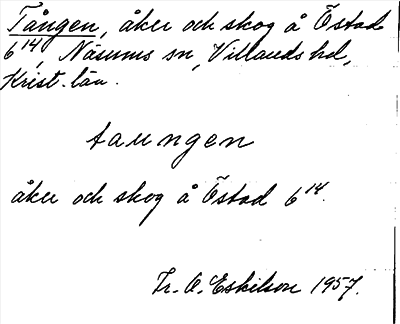 Tången, åker och skog å Östad
6¹⁴, Näsums sn, Villands hd,
Krist. län.
taungen
åker och skog å Östad 6¹⁴.
Fr. O. Eskilson 1957.